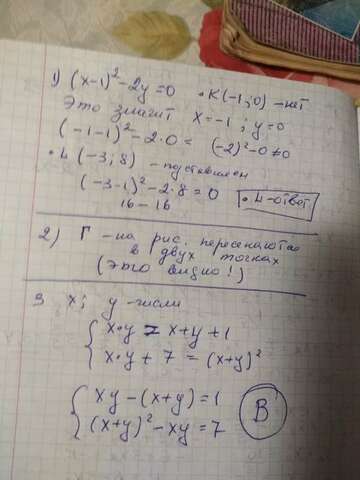 1) (x-1)² - 2y = 0 • K(-1; 0) - нет
Это значит x = -1; y = 0
(-1-1)² - 2·0 = (-2)² - 0 ≠ 0
• L (-3; 8) - подставляем
(-3-1)² - 2·8 = 0
16 - 16
• L - ответ
2) Г - на рис. пересекаются
в двух точках
(это видно!)
3 x; y - числа
{ x·y = x+y+1
{ x·y + 7 = (x+y)²
{ xy - (x+y) = 1
{ (x+y)² - xy = 7
В